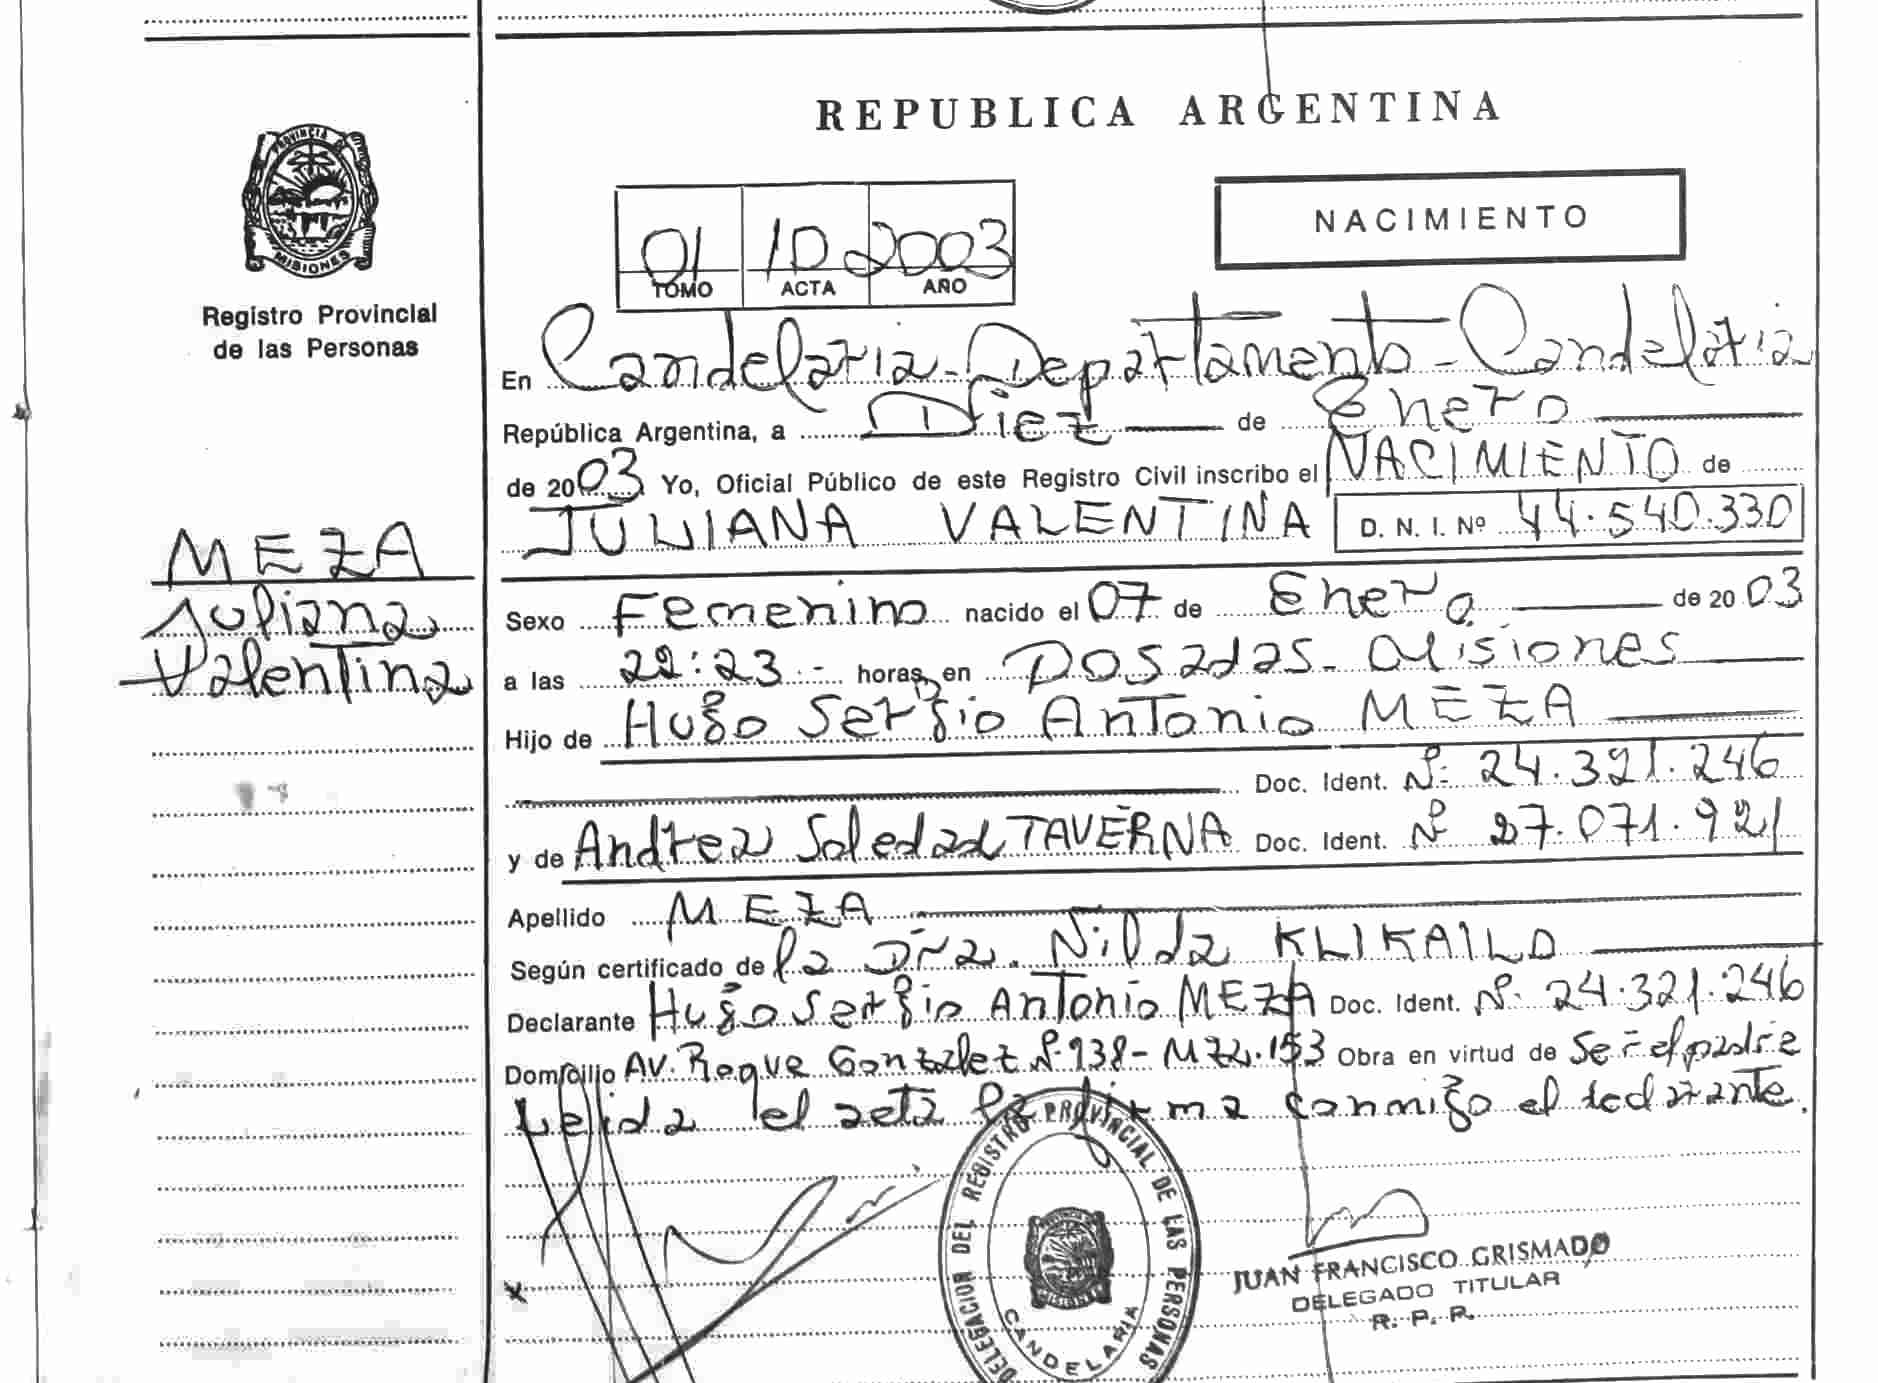 REPUBLICA ARGENTINA
PROVINCIA DE
MISIONES
Registro Provincial
de las Personas
NACIMIENTO
01 10 2003
TOMO ACTA AÑO
En Candelaria - Departamento - Candelaria
República Argentina, a Diez de Enero
de 2003 Yo, Oficial Público de este Registro Civil inscribo el NACIMIENTO de
JULIANA VALENTINA D. N. I. Nº 44.540.330
MEZA
Juliana
Valentina
Sexo Femenino nacido el 07 de Enero de 2003
a las 22:23 - horas, en Posadas - Misiones
Hijo de Hugo Sergio Antonio MEZA
Doc. Ident. Nº 24.321.246
y de Andrea Soledad TAVERNA Doc. Ident. Nº 27.071.921
Apellido MEZA
Según certificado de la Dra. Nilda KLIKAILO
Declarante Hugo Sergio Antonio MEZA Doc. Ident. Nº 24.321.246
Domicilio AV. Roque Gonzalez Nº 938 - MZL. 153 Obra en virtud de ser el padre
Leida el acta la firma conmigo el declarante.
DELEGACION DEL REGISTRO PROVINCIAL DE LAS PERSONAS
CANDELARIA
JUAN FRANCISCO GRISMADO
DELEGADO TITULAR
R. P. P.